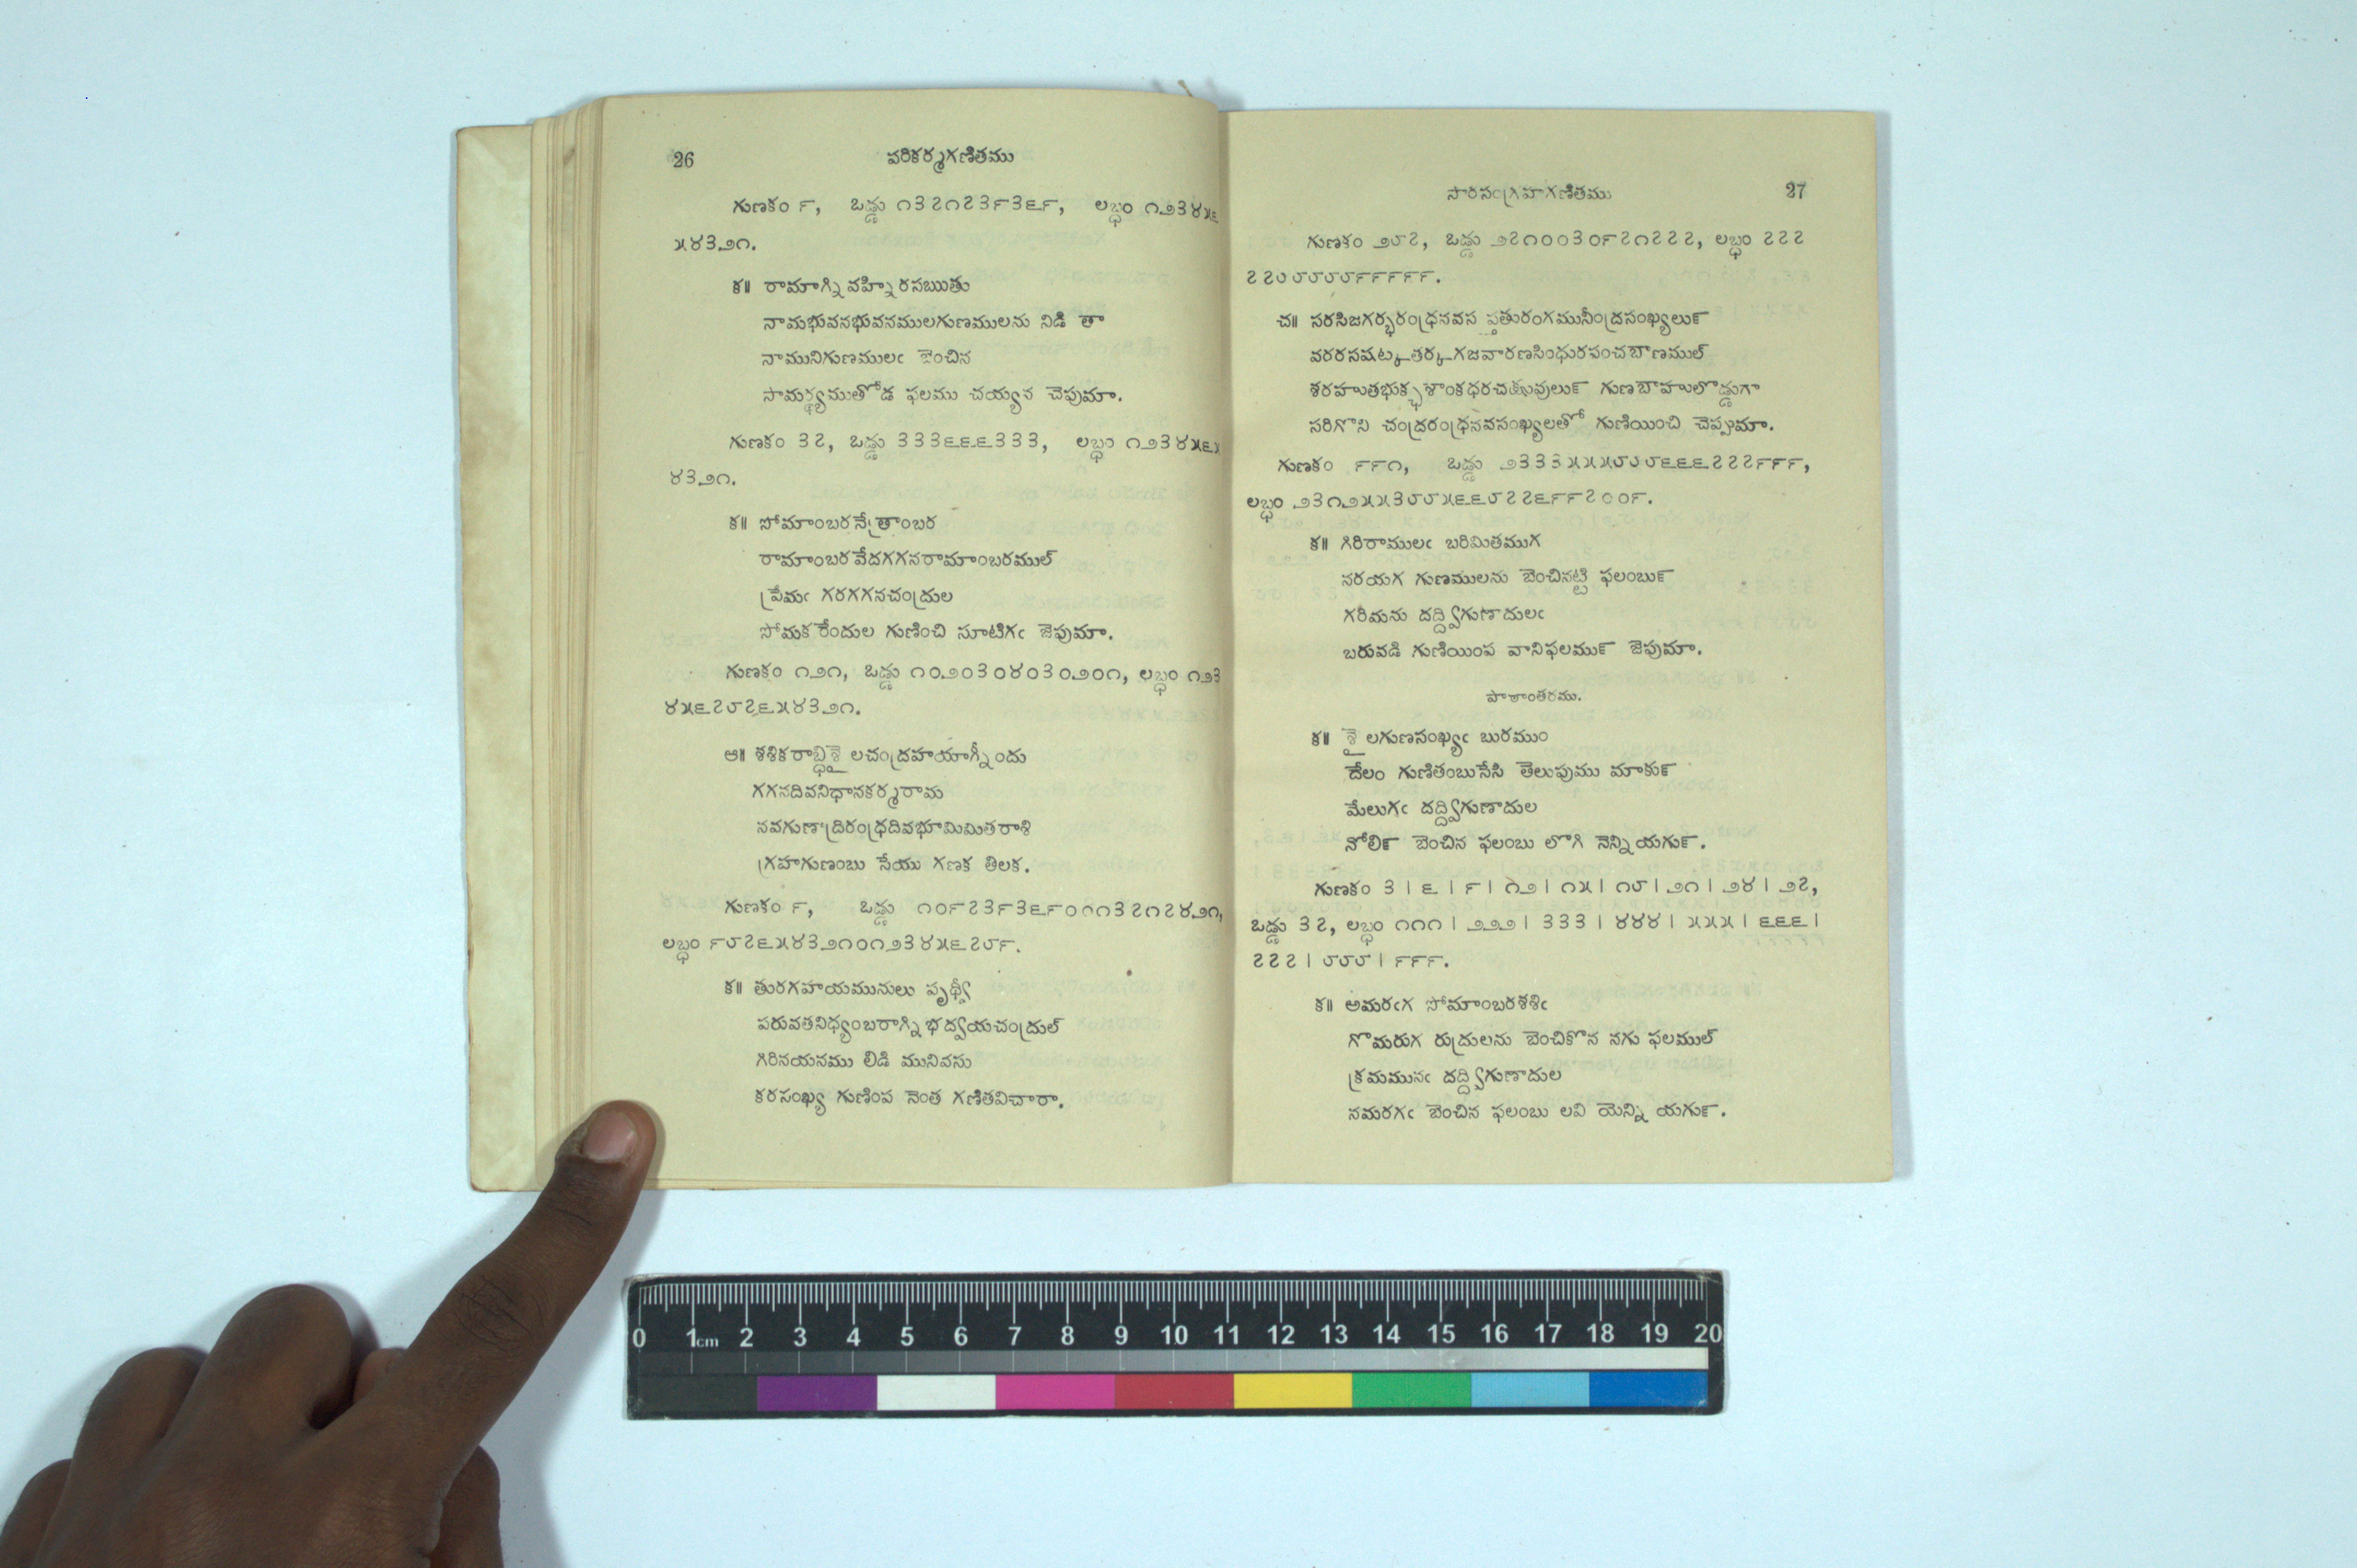 26 పరికర్మగణితము
గుణకం ౯, ఒడ్డు ౧౩౭౧౭౩౯౩౬౯, లబ్ధం ౧౨౩౪౫౬
౫౪౩౨౧.
క॥ రామాగ్ని వహ్ని రసఋతు
నామభువనభువనములగుణములను నిడి తా
నామునిగుణములఁ బెంచిన
సామర్థ్యముతోడ ఫలము చయ్యన చెపుమా.
గుణకం ౩౭, ఒడ్డు ౩౩౩౬౬౬౩౩౩, లబ్ధం ౧౨౩౪౫౬౫
౪౩౨౧.
క॥ సోమాంబరనేత్రాంబర
రామాంబరవేదగగనరామాంబరముల్
ప్రేమఁ గరగగనచంద్రుల
సోమకరేందుల గుణించి సూటిగఁ జెపుమా.
గుణకం ౧౨౧, ఒడ్డు ౧౦౨౦౩౦౪౦౩౦౨౦౧, లబ్ధం ౧౨౩
౪౫౬౭౮౭౬౫౪౩౨౧.
ఆ॥ శశికరాబ్ధిశైలచంద్రహయాగ్నీందు
గగనదివనిధానకర్మరామ
నవగుణాద్రిరంధ్రదివభూమిమితరాశి
గ్రహగుణంబు సేయు గణక తిలక.
గుణకం ౯, ఒడ్డు ౧౦౯౭౩౯౩౬౯౦౦౧౩౭౧౭౪౨౧,
లబ్ధం ౯౮౭౬౫౪౩౨౧౦౧౨౩౪౫౬౭౮౯.
క॥ తురగహయమునులు పృథ్వీ
పరువతనిధ్యంబరాగ్ని భద్వయచంద్రుల్
గిరినయనము లిడి మునివసు
కరసంఖ్య గుణింప నెంత గణితవిచారా.
సారసంగ్రహగణితము 27
గుణకం ౨౮౭, ఒడ్డు ౨౭౧౦౦౩౦౯౭౧౭౭౭, లబ్ధం ౭౭౭
౭౭౮౮౮౮౮౯౯౯౯౯.
చ॥ సరసిజగర్భరంధ్రనవస ప్తతురంగమునీంద్రసంఖ్యలున్
వరరసషట్కతర్కగజవారణసింధురపంచబాణముల్
శరహుతభుక్ఛశాంకధరచక్షువులున్ గుణబాహులొడ్డుగా
సరిగొని చంద్రరంధ్రనవసంఖ్యలతో గుణియించి చెప్పుమా.
గుణకం ౯౯౧, ఒడ్డు ౨౩౩౩౫౫౫౮౮౮౬౬౬౭౭౭౯౯౯,
లబ్ధం ౨౩౧౨౫౫౩౮౮౫౬౬౮౭౭౬౯౯౭౦౦౯.
క॥ గిరిరాములఁ బరిమితముగ
నరయగ గుణములను బెంచినట్టి ఫలంబున్
గరిమను దద్ద్విగుణాదులఁ
బరువడి గుణియింప వానిఫలమున్ జెపుమా.
పాఠాంతరము.
క॥ శైలగుణసంఖ్యఁ బురముం
దేలం గుణితంబుసేసి తెలుపుము మాకున్
మేలుగఁ దద్ద్విగుణాదుల
నోలిన్ బెంచిన ఫలంబు లొగి నెన్ని యగున్.
గుణకం ౩ | ౬ | ౯ | ౧౨ | ౧౫ | ౧౮ | ౨౧ | ౨౪ | ౨౭,
ఒడ్డు ౩౭, లబ్ధం ౧౧౧ | ౨౨౨ | ౩౩౩ | ౪౪౪ | ౫౫౫ | ౬౬౬ |
౭౭౭ | ౮౮౮ | ౯౯౯.
క॥ అమరఁగ సోమాంబరశశిఁ
గొమరుగ రుద్రులను బెంచికొన నగు ఫలముల్
క్రమమునఁ దద్ద్విగుణాదుల
నమరగఁ బెంచిన ఫలంబు లవి యెన్ని యగున్.
0 1cm 2 3 4 5 6 7 8 9 10 11 12 13 14 15 16 17 18 19 20